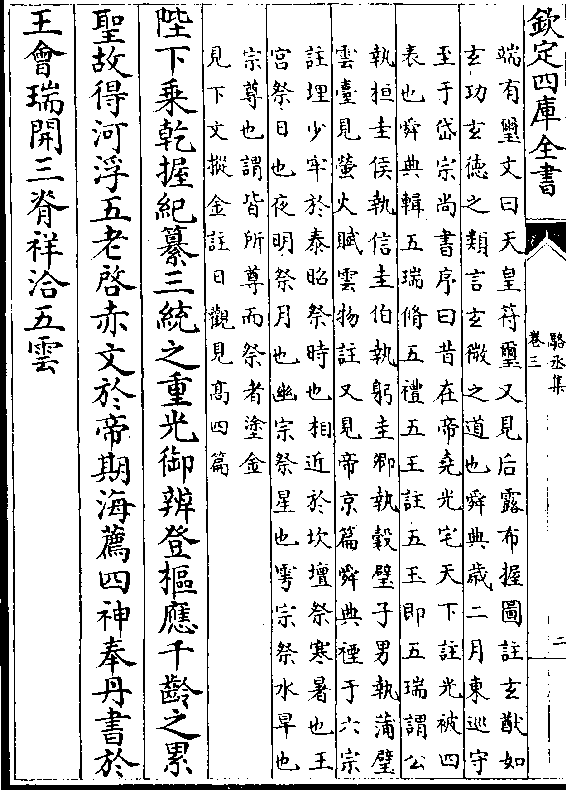 欽定四庫全書
駱丞集
卷三
二
端有璽文曰天皇符璽又見后露布握圖註玄猷如
玄功玄德之類言玄微之道也舜典歲二月東巡守
至于岱宗尚書序曰昔在帝堯光宅天下註光被四
表也舜典輯五瑞脩五禮五玉註五玉即五瑞謂公
執桓圭侯執信圭伯執躬圭卿執榖璧子男執蒲璧
雲臺見螢火賦雲物註又見帝京篇舜典禋于六宗
註埋少牢於泰昭祭時也相近於坎壇祭寒暑也王
宮祭日也夜明祭月也幽宗祭星也雩宗祭水旱也
宗尊也謂皆所尊而祭者塗金
見下文摐金註日觀見髙四篇
陛下乗乾握紀纂三統之重光御辨登樞應千齡之累
聖故得河浮五老啓赤文於帝期海薦四神奉丹書於
王會瑞開三脊祥洽五雲